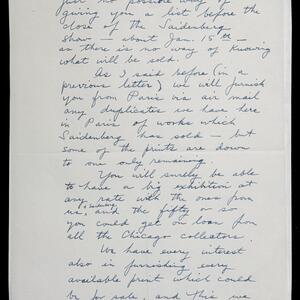 just no possible way of
giving you a list before the
close of the Saidenberg
show — about Jan. 15th —
as there is no way of knowing
what will be sold.
As I said before (in a
previous letter) we will furnish
you from Paris via air mail
any duplicates we have here
in Paris of works which
Saidenberg has sold — but
some of the prints are down
to one only remaining.
You will surely be able
to have a big exhibition at
any rate with the ones from
us, and the fifty or so
you could get on loan from
all the Chicago collectors.
We have every interest
also in furnishing every
available print which could
be for sale, and this we